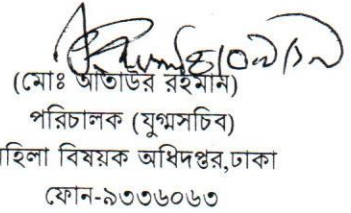 (মোঃ আতাউর রহমান)
পরিচালক (যুগ্মসচিব)
হিলা বিষয়ক অধিদপ্তর,ঢাকা
ফোন-৯৩৩৬০৬৩